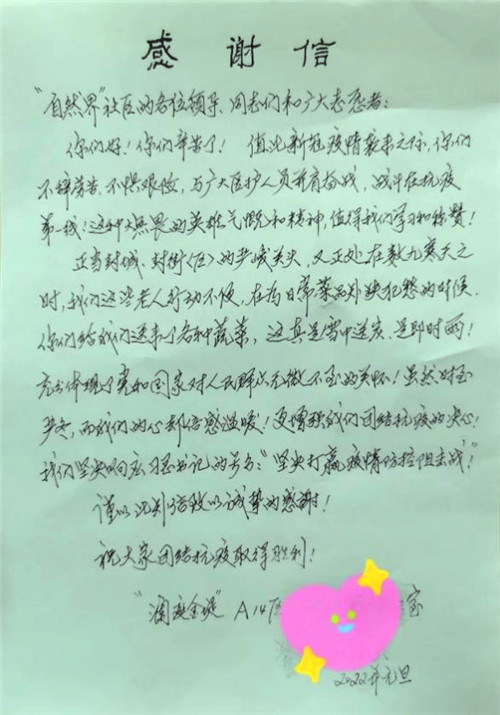 感谢信
“自然界”社区的各位领导、同志们和广大志愿者：
你们好！你们辛苦了！ 值此新冠疫情袭来之际，你们
不辞劳苦、不惧艰险，与广大医护人员并肩奋战，战斗在抗疫
第一线！这种大无畏的英雄气慨和精神，值得我们学习和称赞！
正当封城、封街（区）的严峻关头，又正处在数九寒天之
时，我们这些老人行动不便，在为日常菜品外缺犯愁的时候，
你们给我们送来了各种蔬菜，这真是雪中送炭、是即时雨！
充分体现了党和国家对人民群众无微不至的关怀！虽然时至
严冬，而我们的心都倍感温暖！更增强我们团结抗疫的决心！
我们坚决响应习总书记的号召：“坚决打赢疫情防控阻击战”！
谨以此判信致以诚挚的感谢！
祝大家团结抗疫取得胜利！
“澜庭金堤” A14 宝
2022年元旦